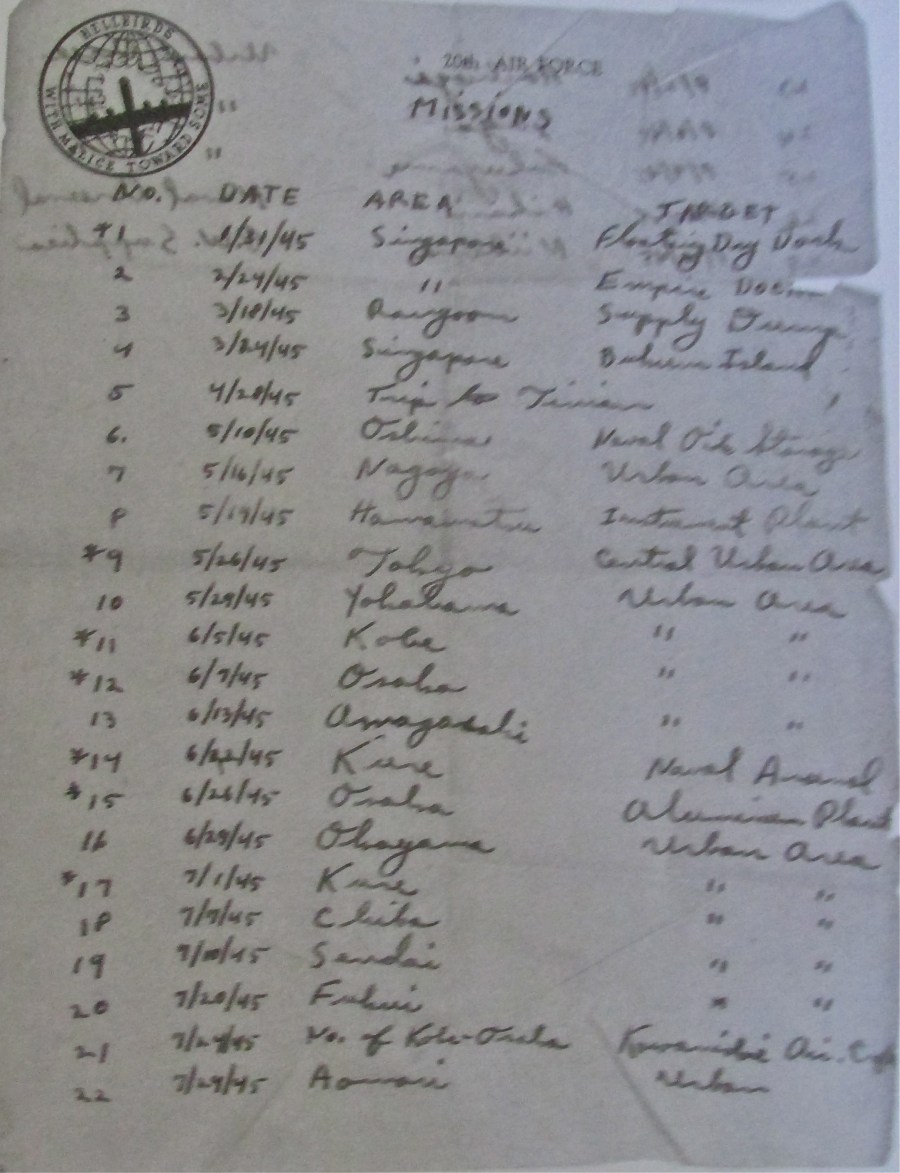 HELLBIRDS
WITH MALICE TOWARD SOME
20th AIR FORCE
MISSIONS
No. DATE AREA TARGET
*1 1/31/45 Singapore Floating Dry Dock
2 2/24/45 " Empire Docks
3 3/18/45 Rangoon Supply Dump
4 3/24/45 Singapore Bukum Island
5 4/20/45 Trip to Tinian
6. 5/10/45 Oshima Naval Oil Storage
7 5/16/45 Nagoya Urban Area
8 5/19/45 Hamamatsu Instrument Plant
*9 5/26/45 Tokyo Central Urban Area
10 5/29/45 Yokohama Urban Area
*11 6/5/45 Kobe " "
*12 6/7/45 Osaka " "
13 6/13/45 Amagasaki " "
*14 6/22/45 Kure Naval Arsenal
*15 6/26/45 Osaka Aluminum Plant
16 6/29/45 Okayama Urban Area
*17 7/1/45 Kure " "
18 7/7/45 Chiba " "
19 7/10/45 Sendai " "
20 7/20/45 Fukui " "
21 7/24/45 No. of Kobe-Osaka Air.
22 7/29/45 Aomori Urban